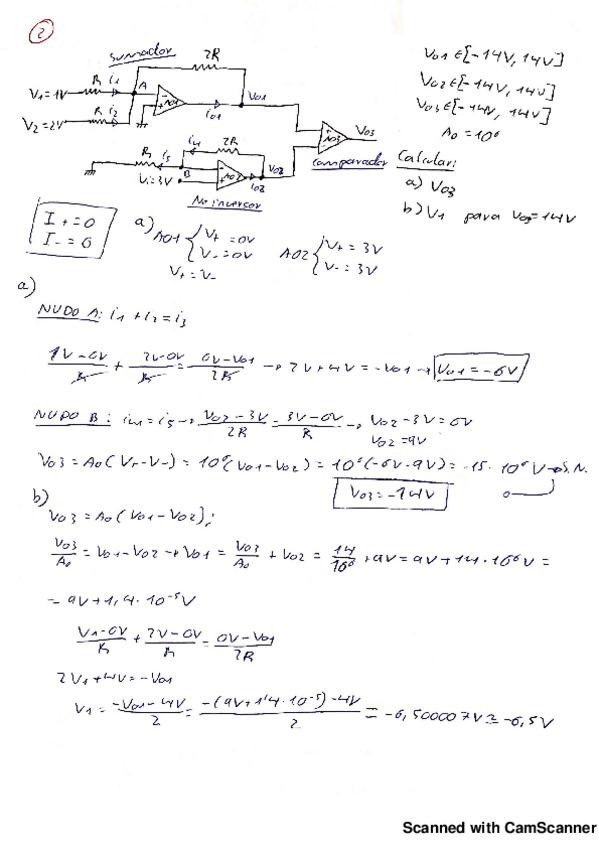 2
sumador
2R
R i1 A
V1=1V
- + AO1 i01 V01
V2=2V R i2
- + AO3 V03
comparador
R i5 i4 2R
B - + AO2 V02
Vi=3V i02
No inversor
V01 ∈ [-14V, 14V]
V02 ∈ [-14V, 14V]
V03 ∈ [-14V, 14V]
A0 = 10⁶
Calcular:
a) V03
b) V1 para V03=14V
I+=0
I-=0
a) AO1 { V+ =0V
V- =0V
V+ = V-
AO2 { V+ = 3V
V- = 3V
a)
NUDO A: i1 + i2 = i3
1V-0V/R + 2V-0V/R = 0V-V01/2R → 2V+4V = -V01 → V01 = -6V
NUDO B: i4 = i5 → V02-3V/2R = 3V-0V/R → V02-3V = 6V
V02 = 9V
V03 = A0(V+-V-) = 10⁶(V01-V02) = 10⁶(-6V-9V) = -15·10⁶V →
V03 = -14V
b)
V03 = A0(V01-V02);
V03/A0 = V01-V02 → V01 = V03/A0 + V02 = 14/10⁶ + 9V = 9V+14·10⁻⁶V =
= 9V+1,4·10⁻⁵V
V1-0V/R + 2V-0V/R = 0V-V01/2R
2V1+4V = -V01
V1 = -V01-4V/2 = -(9V+1'4·10⁻⁵)-4V/2 = -6,500007V ≅ -6,5V
Scanned with CamScanner